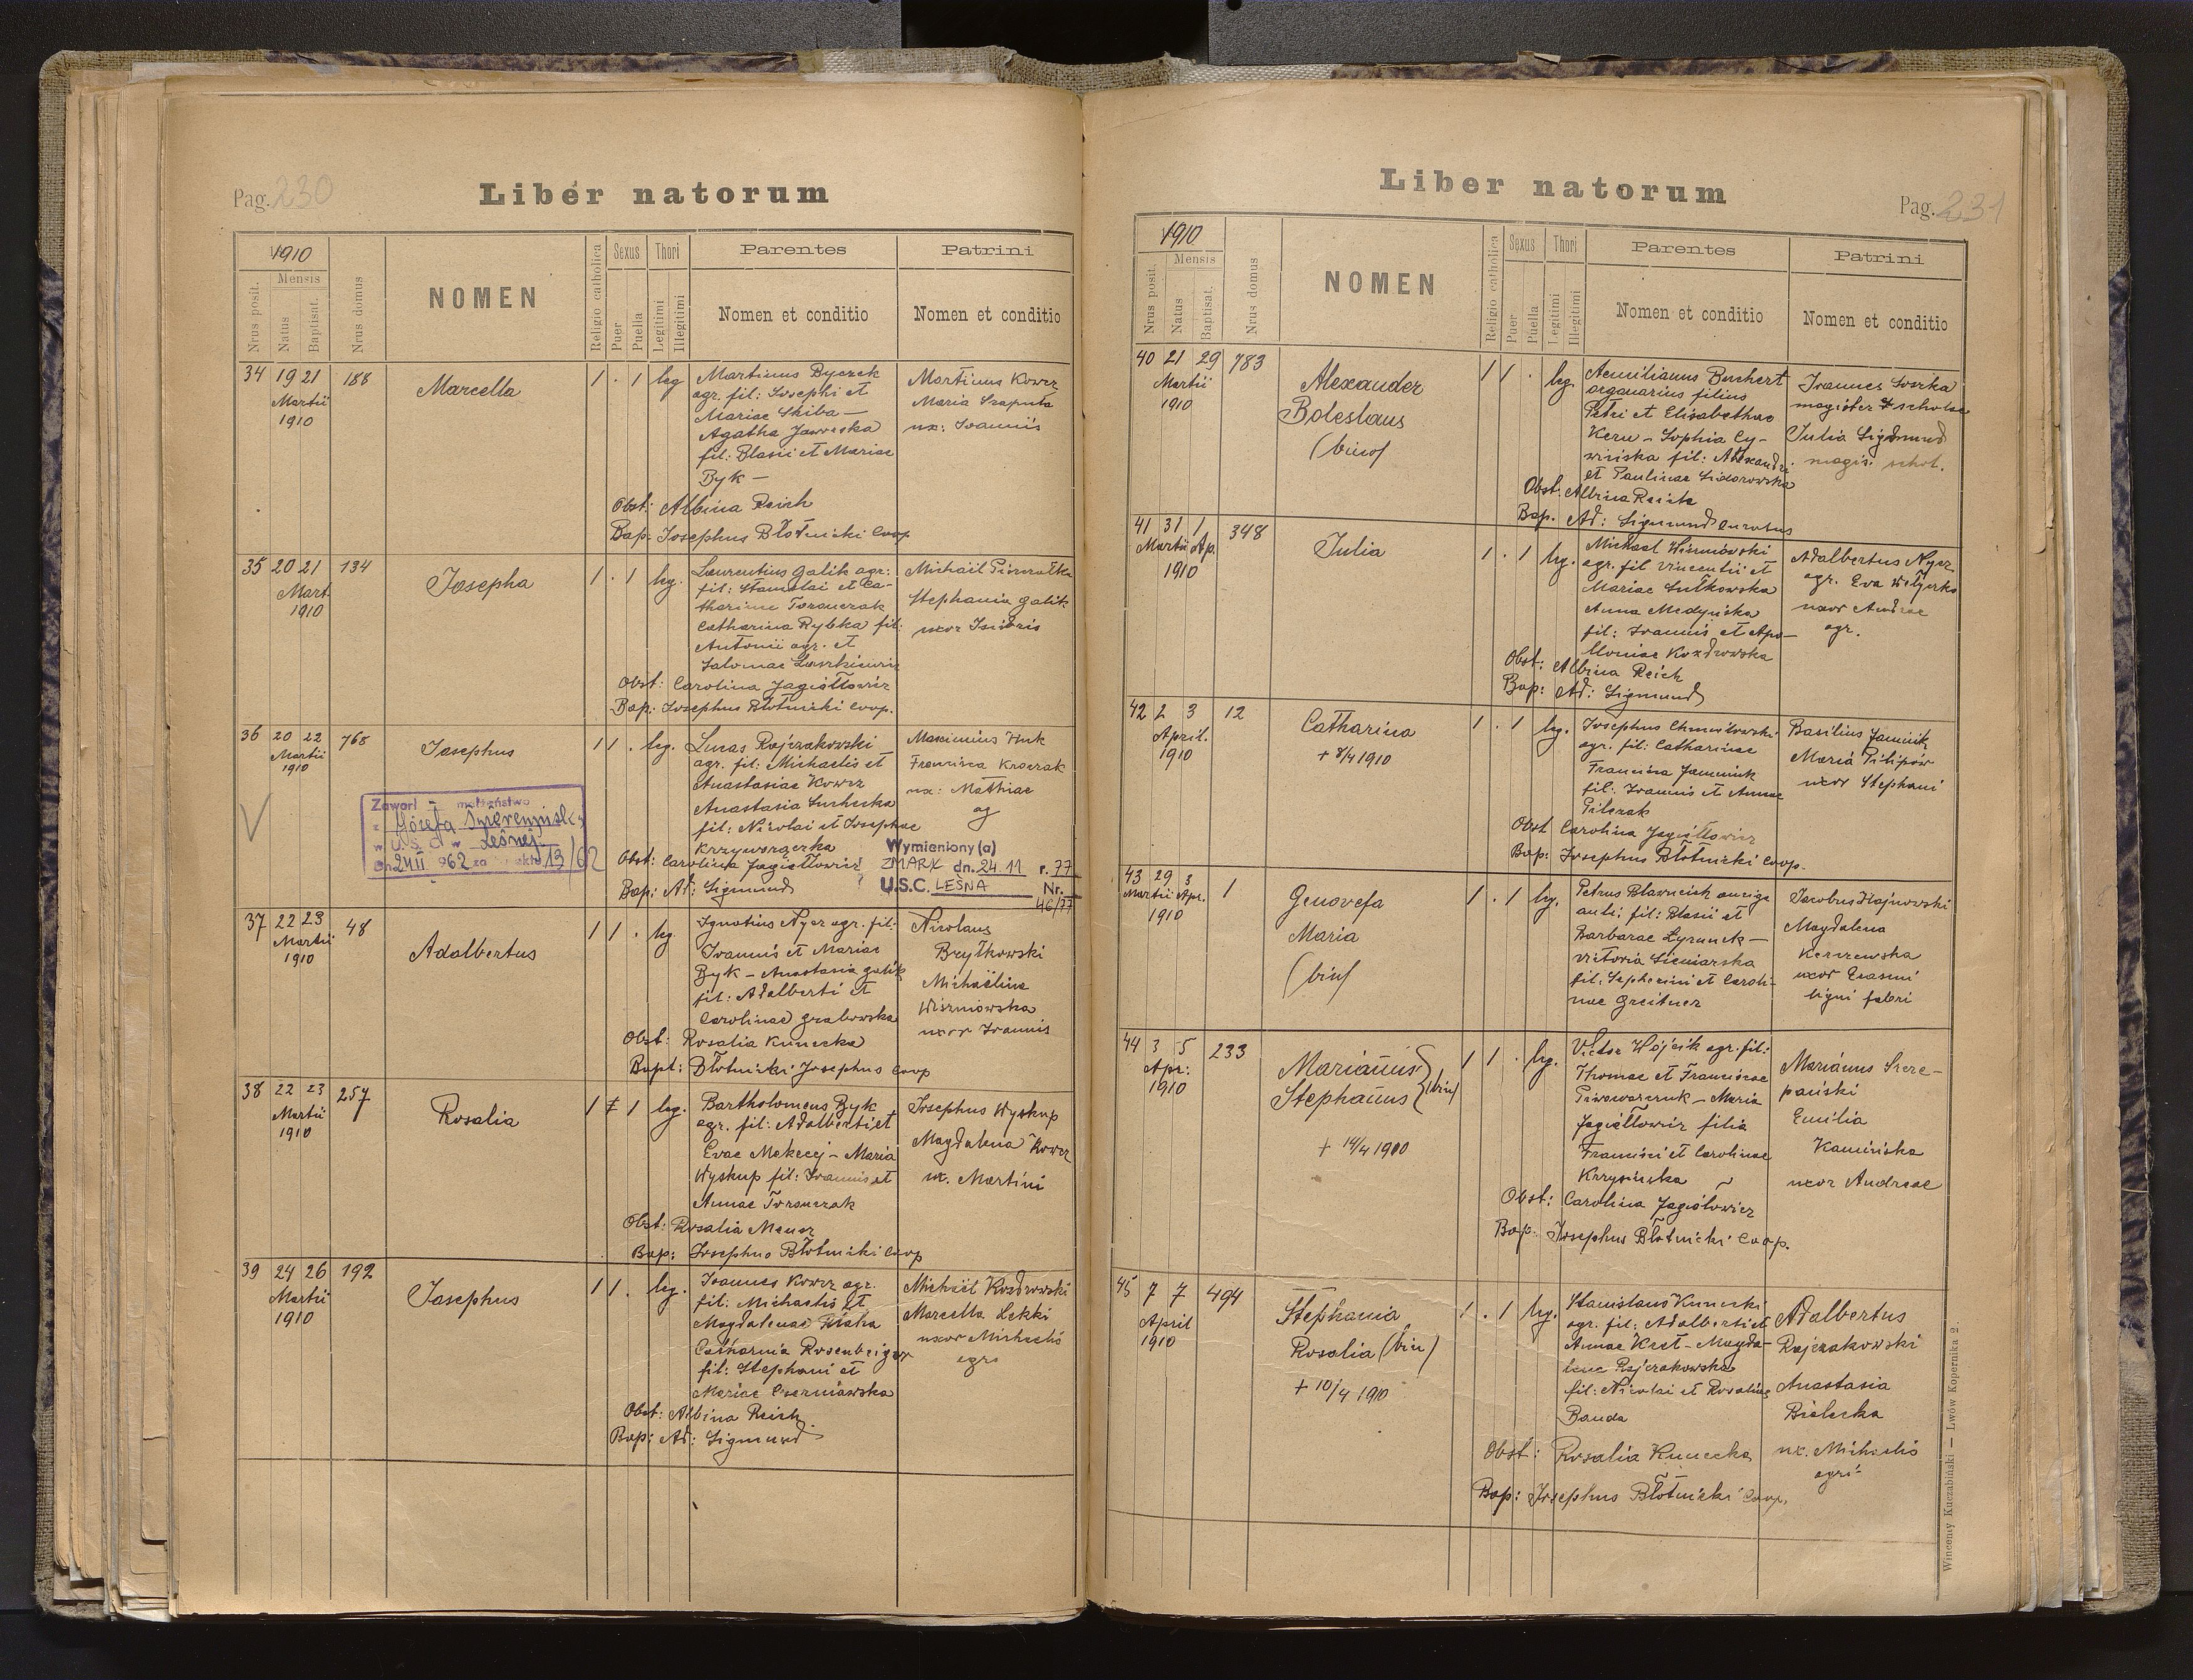 Pag. 230
Liber natorum
1910
Mensis
Nrus posit.
Natus
Baptisat.
Nrus domus
NOMEN
Religio catholica
Sexus
Puer
Puella
Thori
Legitimi
Illegitimi
Parentes
Nomen et conditio
Patrini
Nomen et conditio
34 19 21 188
Martii
1910
Marcella
1 . 1 leg
Martinus Byczek
agr. fil: Josephi et
Mariae Skiba —
Agatha Jaworska
fil: Blasii et Mariae
Byk —
Obst: Albina Reich
Bap: Josephus Błotnicki Coop
Martinus Kowcz
Maria Szaputa
ux: Joannis
35 20 21 134
Mart.
1910
Josepha
1 . 1 leg.
Laurentius Galik agr:
fil: Stanislai et Ca-
tharinae Toronczak
Catharina Rybka fil:
Antonii agr. et
Salomae Laszkiewicz
Obst: Carolina Jagiełłowicz
Bap: Josephus Błotnicki Coop.
Michaël
Stephania Galik
uxor Isidoris
36 20 22 768
Martii
1910
Josephus
1 1 . leg.
Lucas Rajczakowski —
agr. fil: Michaelis et
Anastasiae Kowcz
Anastasia Suchecka
fil: Nicolai et Josephae
Obst: Carolina Jagiełłowicz
Bap: Ad: Sigmund
Maximius Huk
Francisca Kraczak
ux: Mathiae
ag
Zawarł - małżeństwo
z Józefą
w U.S.C. w Leśnej
dn 24 II 962 za Nr aktu 13/62
Wymieniony (a)
ZMARŁ dn. 24 11 r. 77
U.S.C. LEŚNA Nr.
46/77
37 22 23 48
Martii
1910
Adalbertus
1 1 . leg
Ignatius Nycz agr. fil:
Joannis et Mariae
Byk — Anastasia Galik
fil: Adalberti et
Carolinae Grabowska
Obst: Rosalia Kunecka
Bapt: Błotnicki Josephus Coop
Nicolaus
Brytkowski
Michaëlina
Wiszniowska
uxor Joannis
38 22 23 257
Martii
1910
Rosalia
1 1 leg.
Bartholomeus Byk
agr. fil: Adalberti et
Evae Mekecej — Maria
Wyskup fil: Joannis et
Annae Toronczak
Obst: Rosalia
Bap: Josephus Błotnicki Coop
Josephus Wyskup
Magdalena Kowcz
ux. Martini
39 24 26 192
Martii
1910
Josephus
1 1 . leg.
Joannes Kowcz agr.
fil: Michaelis et
Magdalenae
Catharina Rosenbeiger
fil: Stephani et
Mariae Czerniawska
Obst: Albina Reich
Bap: Ad: Sigmund
Michaël Kozdrowski
Marcella Lekki
uxor Michaelis
agri
Liber natorum
Pag. 231
1910
Mensis
Nrus posit.
Natus
Baptisat.
Nrus domus
NOMEN
Religio catholica
Sexus
Puer
Puella
Thori
Legitimi
Illegitimi
Parentes
Nomen et conditio
Patrini
Nomen et conditio
40 21 29 783
Martii
1910
Alexander
Boleslaus
(bin)
1 1 . leg.
Aemilianus Buchert
organarius filius
Petri et Elisabethae
Kern — Sophia Cy-
wińska fil: Alexandri
et Paulinae Sidorowska
Obst: Albina Reich
Bap. Ad: Sigmund Curatus
Joannes Soszka
magister scholae
Julia Sigmund
magis. schol.
41 31 1 348
Martii Ap.
1910
Julia
1 . 1 leg.
Michael Wiszniowski
agr. fil Vincentii et
Mariae Sułkowska
Anna Medyńska
fil: Joannis et Apo-
lloniae Kozdrowska
Obst: Albina Reich
Bap: Ad: Sigmund
Adalbertus Nycz
agr. Eva
uxor Andreae
agr.
42 2 3 12
April.
1910
Catharina
+ 8/4 1910
1 . 1 leg.
Josephus Chmielowski
agr. fil: Catharinae
Francisca Jamnik
fil: Joannis et Annae
Pilczak
Obst Carolina Jagiełłowicz
Bap: Josephus Błotnicki Coop.
Basilius Jamnik
Maria Pilipów
uxor Stephani
43 29 3 1
Martii Apr.
1910
Genovefa
Maria
(bin)
1 . 1 leg.
Petrus auriga
auli; fil: Blasii et
Barbarae
Victoria Sieniarska
fil: Sepherini et Caroli-
nae Greitner
Jacobus Hajnowski
Magdalena
Kerczewska
uxor Erasmi
ligni fabri
44 3 5 233
Apr:
1910
Marianus
Stephanus (bin)
+ 14/4 1910
1 1 . leg.
Victor Wójcik agr. fil:
Thomae et Franciscae
Piwowarczuk — Maria
Jagiełłowicz filia
Francisci et Carolinae
Krzysińska
Obst: Carolina Jagiełowicz
Bap: Josephus Błotnicki Coop.
Marianus Szcze-
pański
Emilia
Kamińska
uxor Andreae
45 7 7 494
April
1910
Stephania
Rosalia (bin)
+ 10/4 1910
1 . 1 leg.
Stanislaus Kunecki
agr. fil: Adalberti et
Annae Kret — Magda-
lena Rajczakowska
fil: Nicolai et Rosaliae
Banda
Obst: Rosalia Kunecka
Bap: Josephus Błotnicki Coop.
Adalbertus
Rajczakowski
Anastasia
Bielecka
ux. Michaelis
agri
Wincenty Kuczabiński — Lwów Kopernika 2.